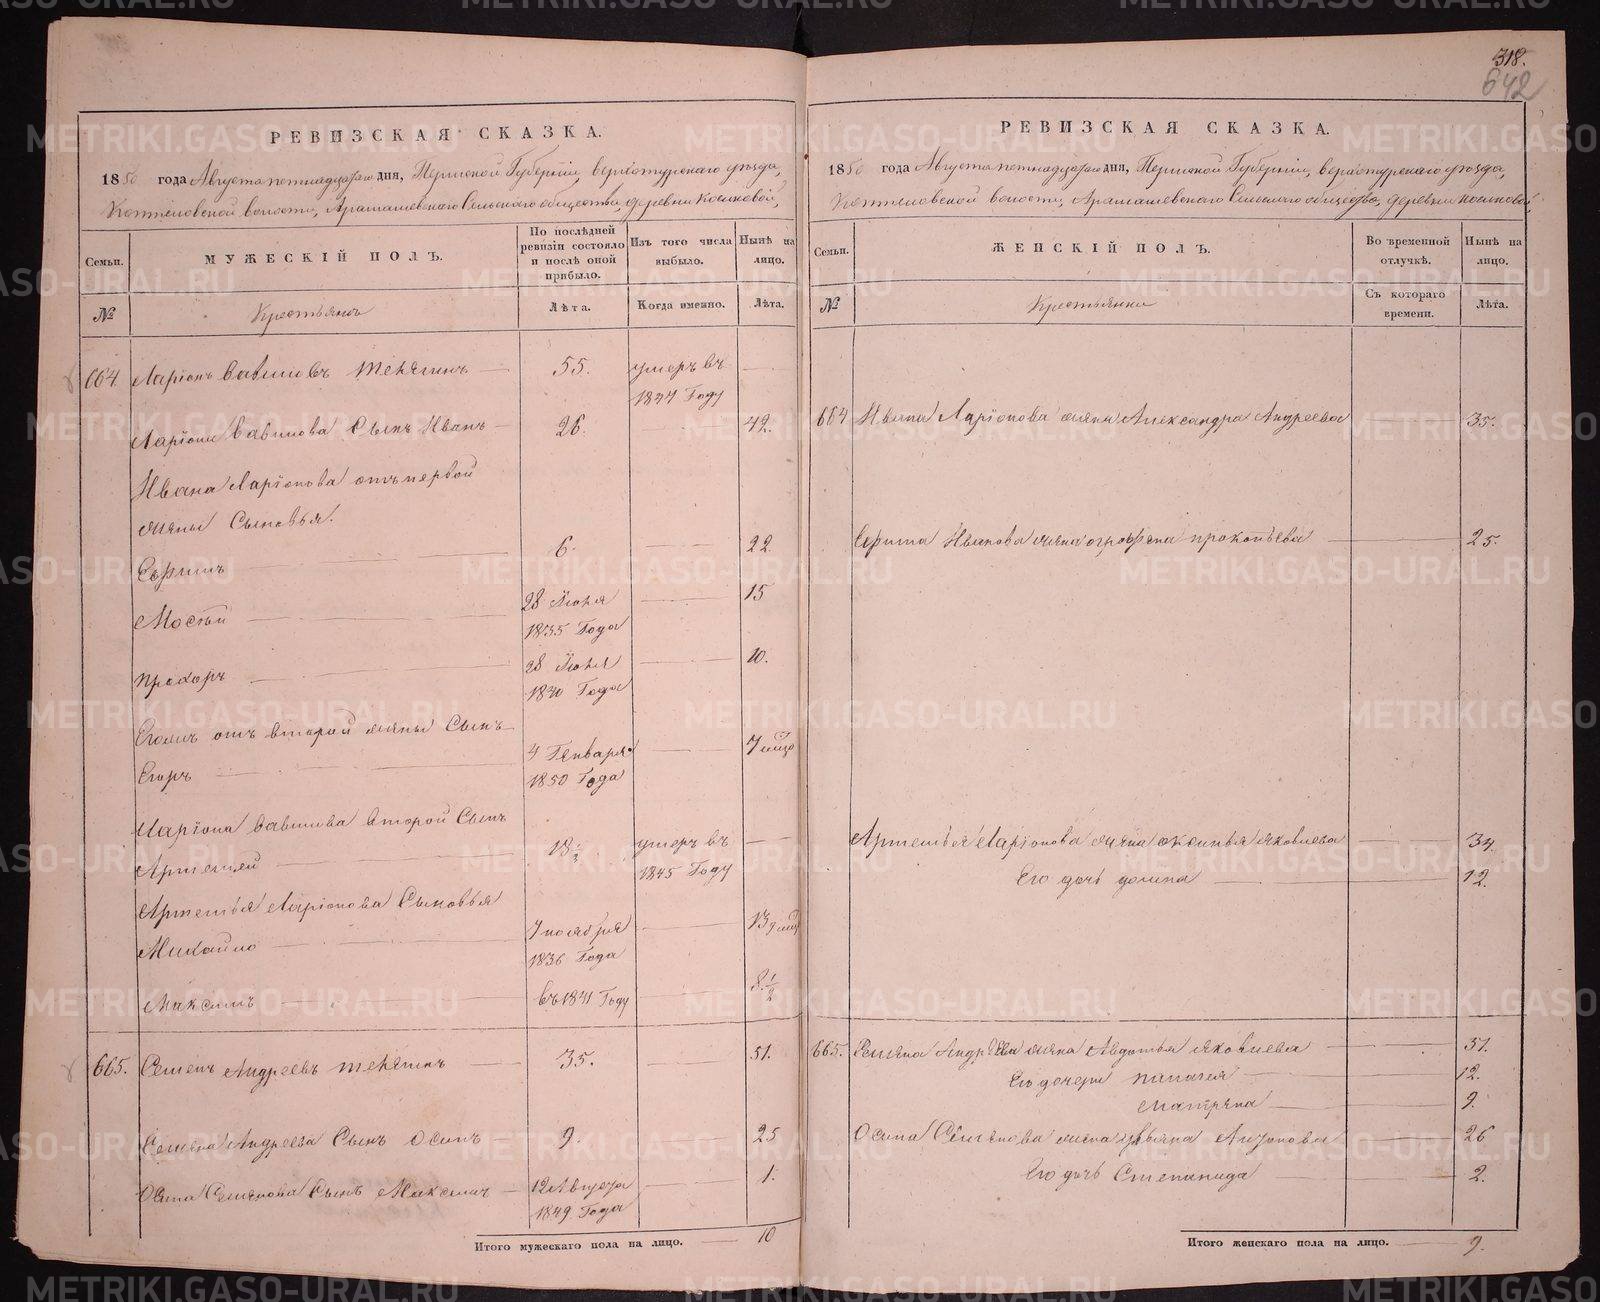 318.
642
РЕВИЗСКАЯ СКАЗКА.
1850 года Августа пятнадцатаго дня, Пермской Губерніи, верхотурскаго уѣзда,
волости, Арамашевскаго Сельскаго общества, деревни
Семьи.
МУЖЕСКІЙ ПОЛЪ.
По послѣдней ревизіи состояло и послѣ оной прибыло.
Изъ того числа выбыло.
Нынѣ на лицо.
№
Крестьянъ
Лѣта.
Когда именно.
Лѣта.
664
Ларіонъ Вавиловъ
55.
умеръ въ
1847 Году
Ларіона Вавилова Сынъ Иванъ
26.
42.
Ивана Ларіонова отъ первой
жены Сыновья.
6.
22.
28 Іюня
15
1835 Года
прохоръ
28 Іюня
10.
1840 Года
Егожъ отъ второй жены Сынъ
Егоръ
4 Генваря
7 мцо
1850 Года
Ларіона Вавилова второй Сынъ
Артемей
18½
умеръ въ
1845 Году
Артемья Ларіонова Сыновья
Михайло
7 ноября
13
1836 Года
Максимъ
въ 1841 Году
8.½
665.
Семенъ Андреевъ
35.
51.
Семена Андреева Сынъ Осипъ
9.
25
Осипа Семенова Сынъ Максимъ
12 Августа
1.
1849 Года
Итого мужескаго пола на лицо.
10
РЕВИЗСКАЯ СКАЗКА.
1850 года Августа пятнадцатаго дня, Пермской Губерніи, верхотурскаго уѣзда,
волости, Арамашевскаго Сельскаго общества, деревни
Семьи.
ЖЕНСКІЙ ПОЛЪ.
Во временной отлучкѣ.
Нынѣ на лицо.
№
Крестьянки
Съ котораго времени.
Лѣта.
664
Ивана Ларіонова жена Александра Андреева
35.
Ивanова жена прокопьева
25.
Артемья Ларіонова жена яковлева
34
Его дочь
12.
665.
Семена Андреева жена Авдотья яковлева
37.
Его дочери
12.
матрена
9.
Осипа Семенова жена Антонова
26
Его дочь Степанида
2.
Итого женскаго пола на лицо.
9.
METRIKI.GASO-URAL.RU